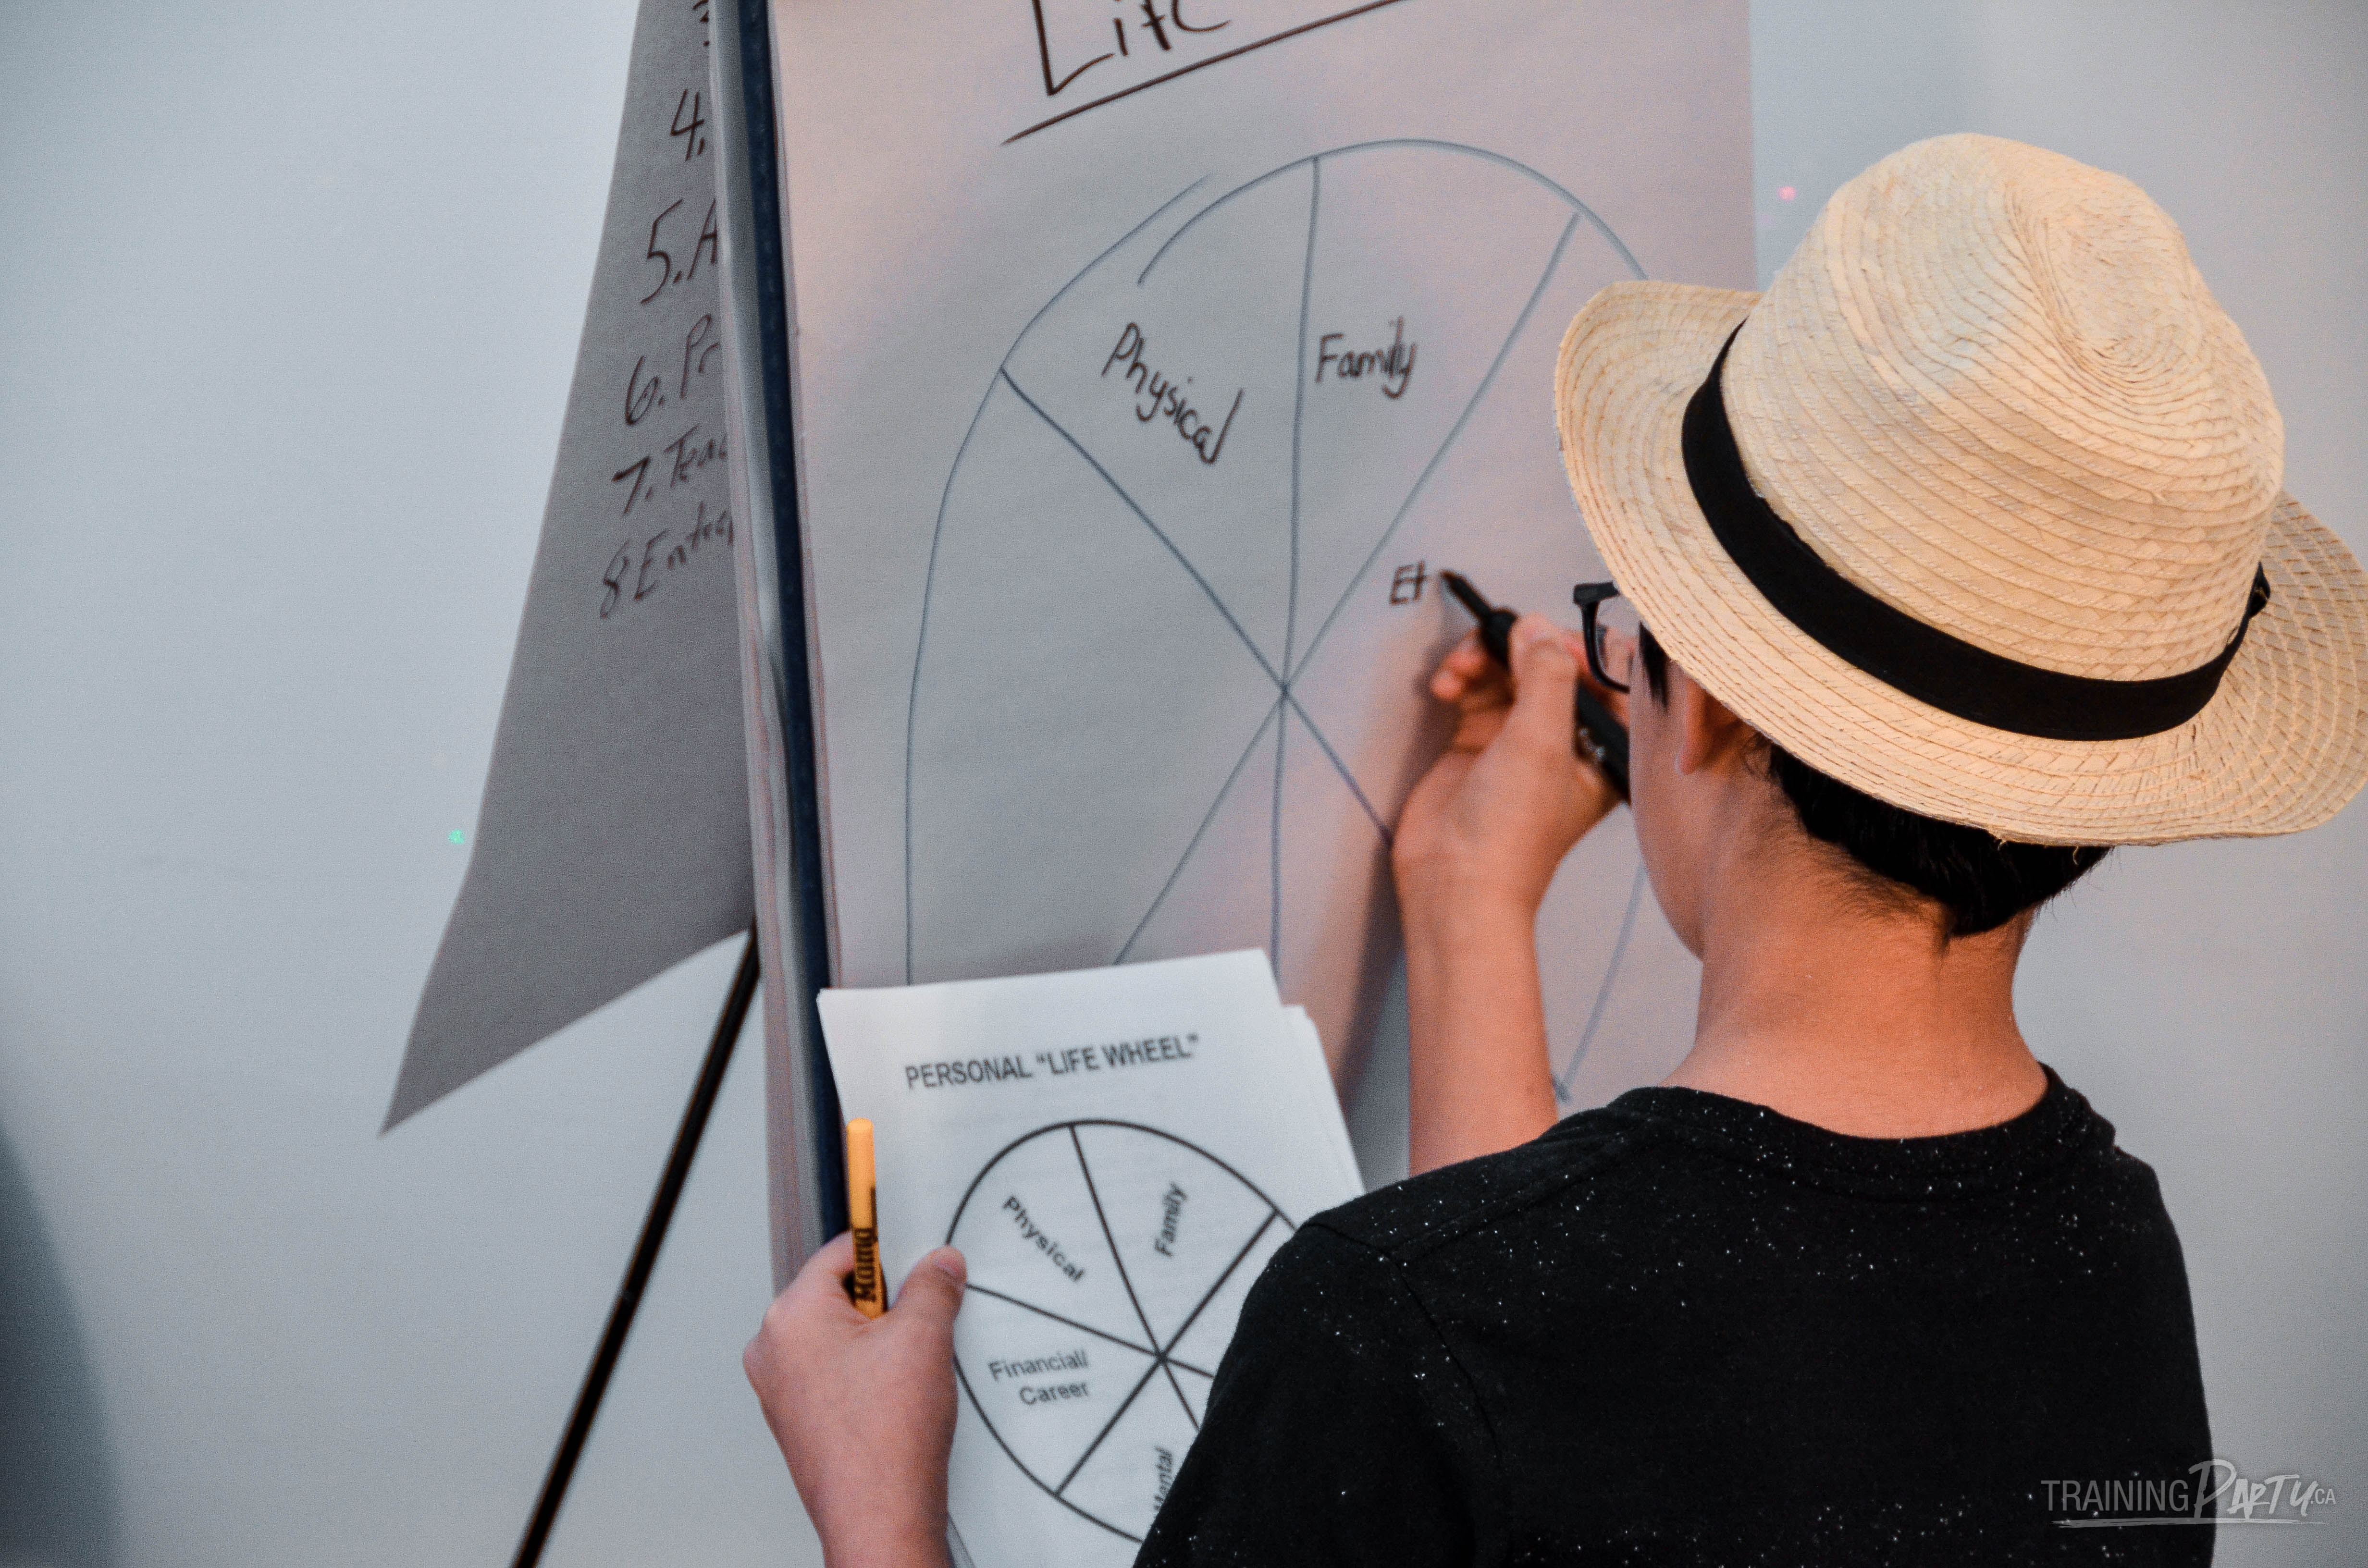 Life
4.
5. A
6. Pr
7. Teac
8 Entrep
Physical
Family
Et
PERSONAL "LIFE WHEEL"
Physical
Family
Financial/
Career
Mental
TRAINING PARTY.CA